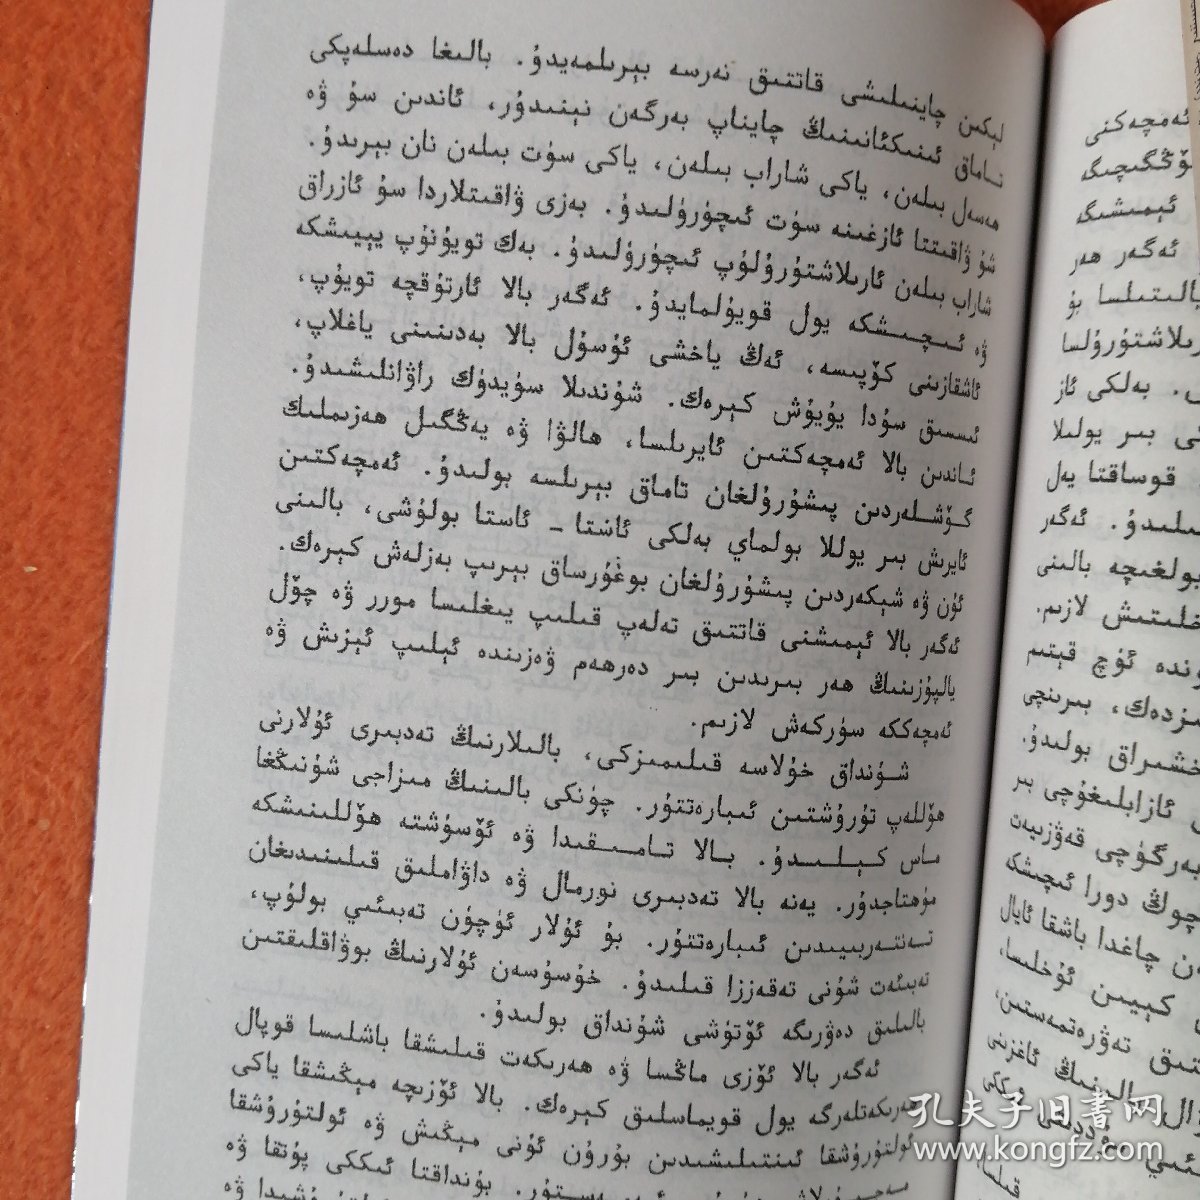 لېكىن چاينىلىشى قاتتىق نەرسە بېرىلمەيدۇ. بالىغا دەسلەپكى
تاماق ئىنىكئانىنىڭ چايناپ بەرگەن نېنىدۇر، ئاندىن سۇ ۋە
ھەسەل بىلەن، ياكى شاراب بىلەن، ياكى سۈت بىلەن نان بېرىدۇ.
شۇ ۋاقىتتا ئازغىنە سۈت ئىچۈرۈلىدۇ. بەزى ۋاقىتلاردا سۇ ئازراق
شاراب بىلەن ئارىلاشتۇرۇلۇپ ئىچۈرۈلىدۇ. بەك تويۇنۇپ يېيىشكە
ۋە ئىچىشكە يول قويۇلمايدۇ. ئەگەر بالا ئارتۇقچە تويۇپ،
ئاشقازىنى كۆپىسە، ئەڭ ياخشى ئۇسۇل بالا بەدىنىنى ياغلاپ،
ئىسسىق سۇدا يۇيۇش كېرەك. شۇندىلا سۈيدۈك راۋانلىشىدۇ.
ئاندىن بالا ئەمچەكتىن ئايرىلسا، ھالۋا ۋە يەڭگىل ھەزىملىك
گۆشلەردىن پىشۇرۇلغان تاماق بېرىلسە بولىدۇ. ئەمچەكتىن
ئايرىش بىر يوللا بولماي بەلكى ئاستا - ئاستا بولۇشى، بالىنى
ئۇن ۋە شېكەردىن پىشۇرۇلغان بوغۇرساق بېرىپ بەزلەش كېرەك.
ئەگەر بالا ئېمىشنى قاتتىق تەلەپ قىلىپ يىغلىسا مورر ۋە چۆل
يالپۇزىنىڭ ھەر بىرىدىن بىر دەرھەم ۋەزىندە ئېلىپ ئېزىش ۋە
ئەمچەككە سۈركەش لازىم.
شۇنداق خۇلاسە قىلىمىزكى، بالىلارنىڭ تەدبىرى ئۇلارنى
ھۆللەپ تۇرۇشتىن ئىبارەتتۇر. چۈنكى بالىنىڭ مىزاجى شۇنىڭغا
ماس كېلىدۇ. بالا تامىقىدا ۋە ئۆسۈشتە ھۆللىنىشكە
مۇھتاجدۇر. يەنە بالا تەدبىرى نورمال ۋە داۋاملىق قىلىنىدىغان
تەنتەربىيىدىن ئىبارەتتۇر. بۇ ئۇلار ئۈچۈن تەبىئىي بولۇپ،
تەبىئەت شۇنى تەقەززا قىلىدۇ. خۇسۇسەن ئۇلارنىڭ بوۋاقلىقتىن
بالىلىق دەۋرىگە ئۆتۈشى شۇنداق بولىدۇ.
ئەگەر بالا ئۆزى ماڭسا ۋە ھەرىكەت قىلىشقا باشلىسا قوپال
ھەرىكەتلەرگە يول قويماسلىق كېرەك. بالا ئۆزىچە مېڭىشقا ياكى
ئولتۇرۇشقا ئىنتىلىشىدىن بۇرۇن ئۇنى مېڭىش ۋە ئولتۇرۇشقا
بۇنداقتا ئىككى پۇتقا ۋە
ئەمچەكنى
ئېمىشىگە
ئەگەر ھەر
بەلكى ئاز
بىر يولىلا
قوساقتا يەل
ئەگەر
بولغىچە بالىنى
لازىم.
ئۈچ قېتىم
بىرىنچى
بولىدۇ.
ئازابلىغۇچى بىر
قەۋزىيەت
چوڭ دورا ئىچىشكە
چاغدا باشقا ئايال
كېيىن ئۇخلىسا،
بالىنىڭ ئاغزىنى
孔夫子旧書网
www.kongfz.com